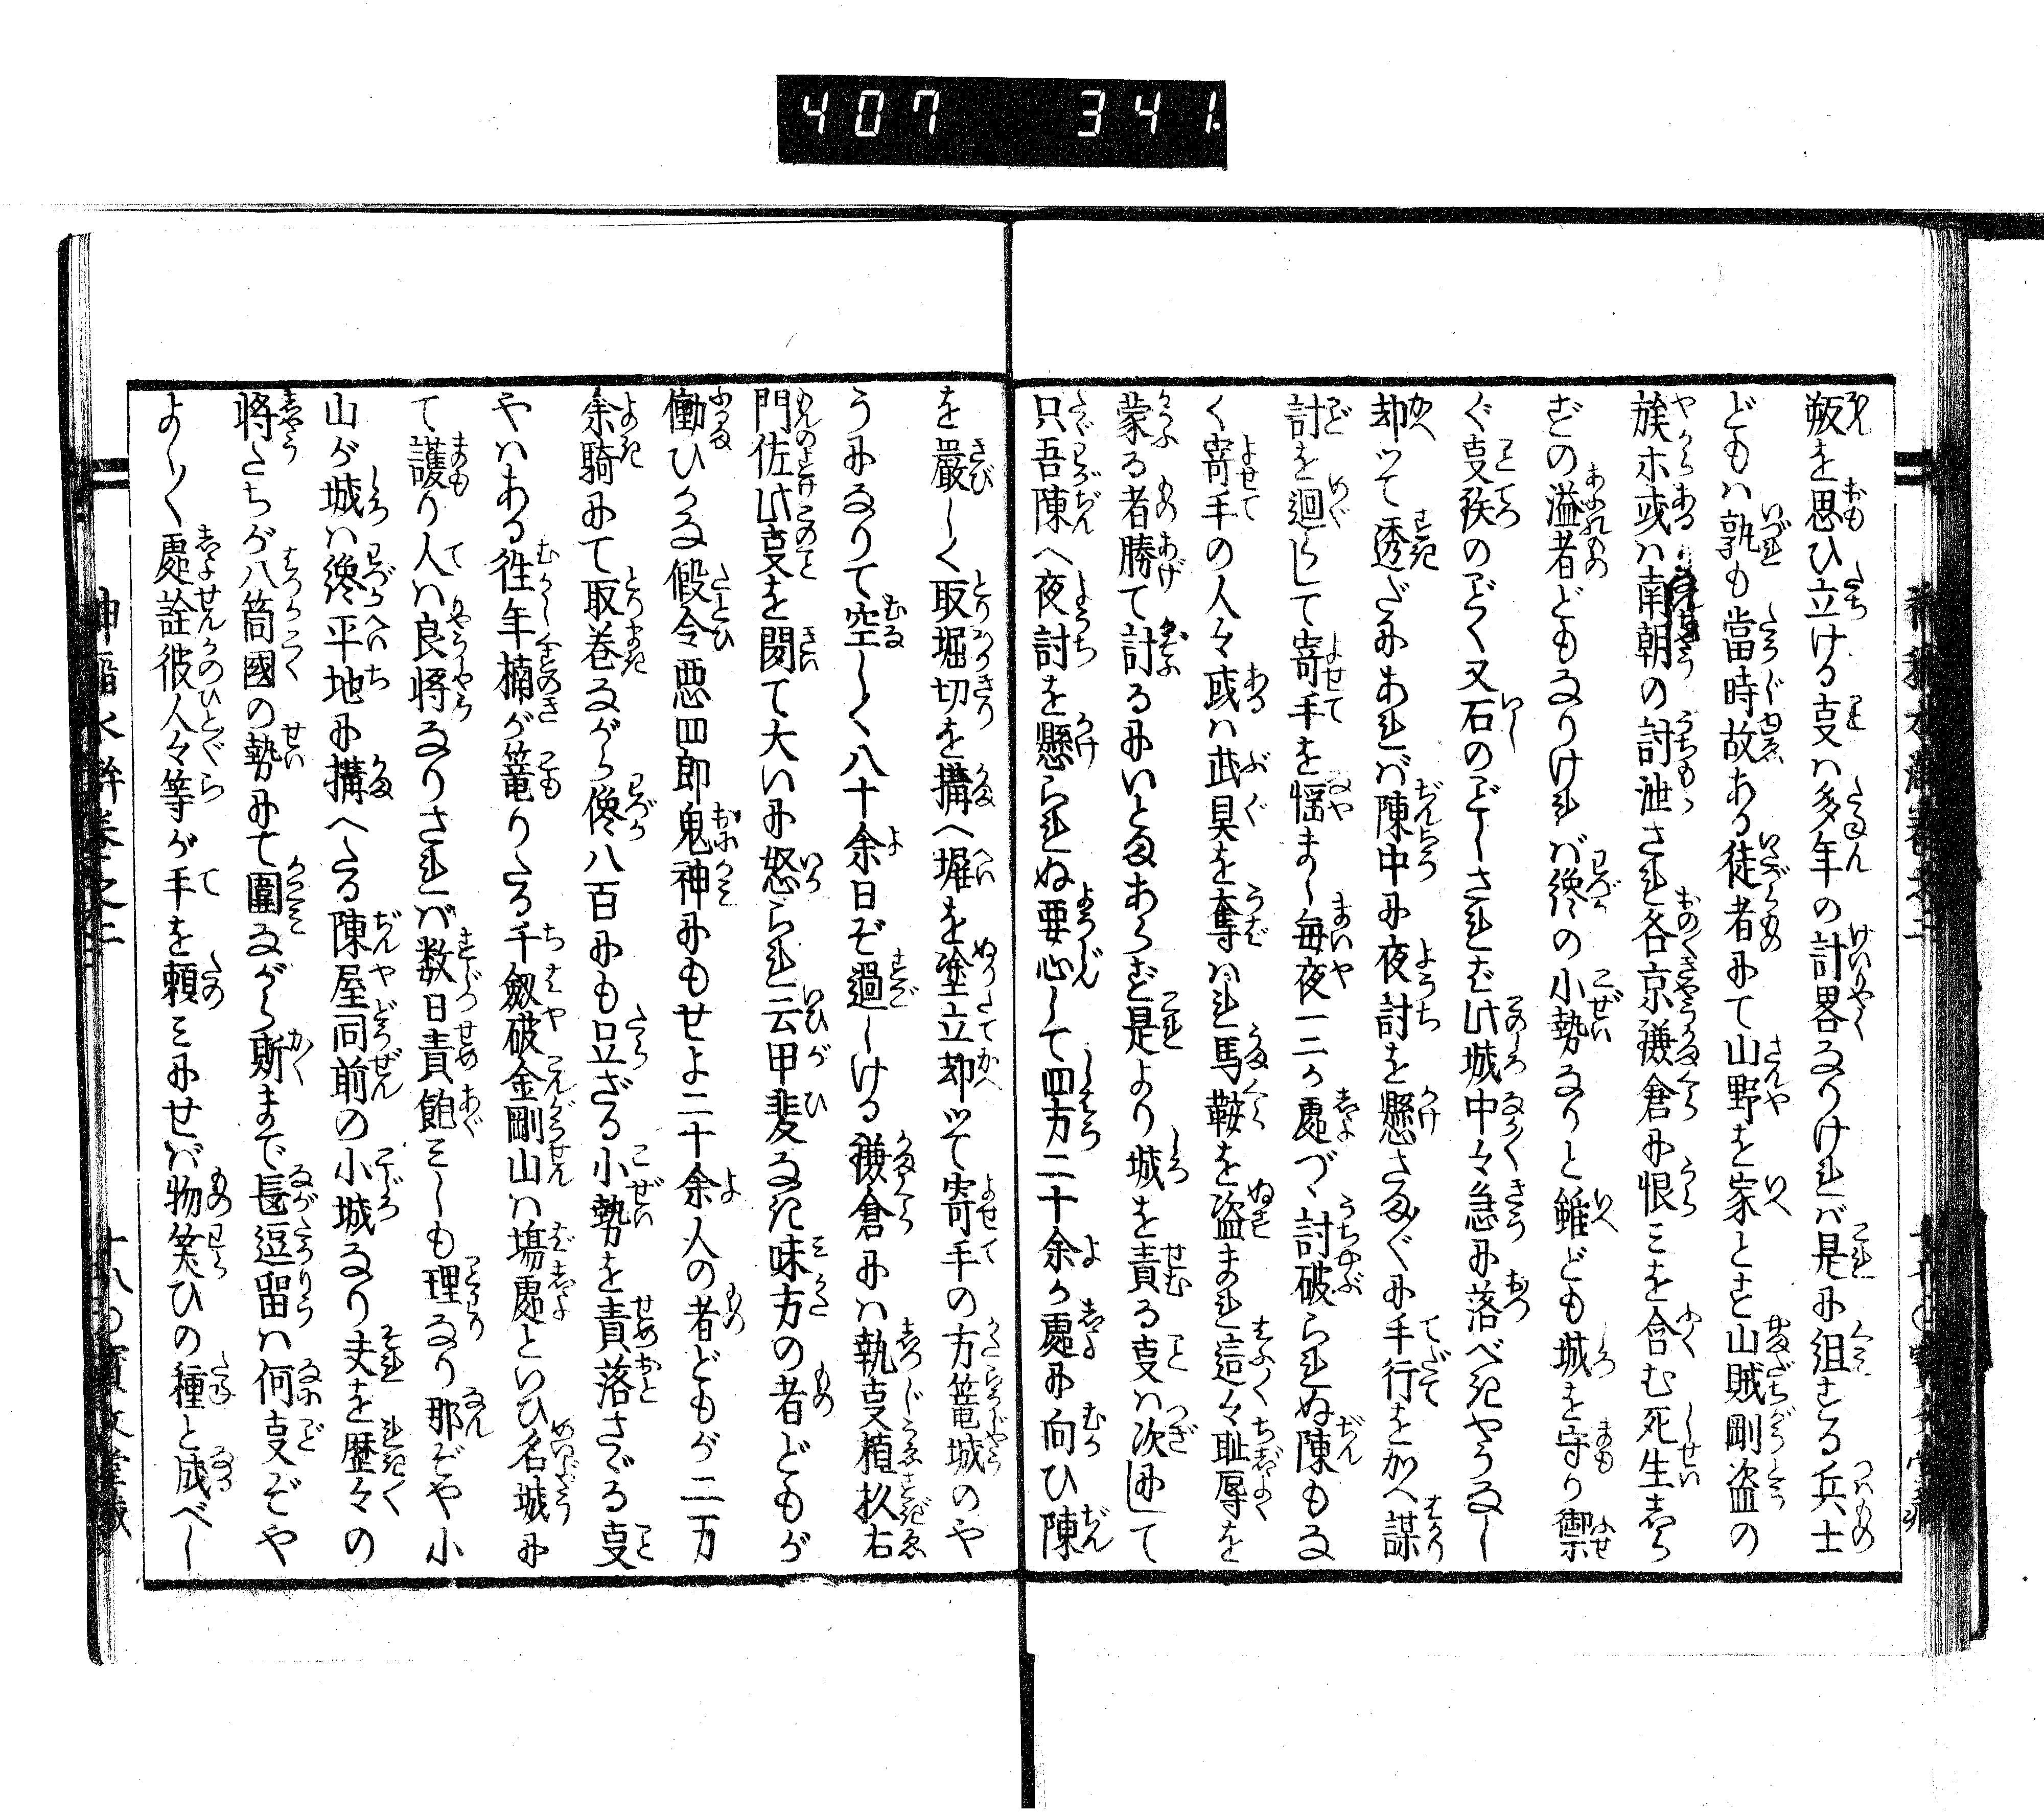 407 341.
叛を思ひ立ける㕝ハ多年の計畧なりけれバ是に组する兵士
どもハ孰も當時故ある徒者にて山野を家とし山賊剛盗の
族ホ或ハ南朝の討泄され各京鎌倉に恨ミを含む死生しら
ずの溢者どもなりけれバ纔の小勢なりと雖ども城を守り禦
ぐ㕝鉄のごく又石のごしされば此城中々急に落べきやうなし
却ツて透だにあれバ陳中に夜討を懸さまぐに手行をかへ謀
計を廻らして寄手を悩まし毎夜一二ヶ處づゝ討破られぬ陳もな
く寄手の人々或ハ武具を奪ハれ馬鞍を盗まれ這々耻辱を
蒙る者勝て計るにいとまあらず是より城を責る㕝ハ次にして
只吾陳へ夜討を懸られぬ要心して四方二十余ヶ處に向ひ陳
を嚴しく取堀切を搆へ塀を塗立却ツて寄手の方篭城のや
うになりて空しく八十余日ぞ過しける鎌倉にハ執㕝植杉右
門佐此㕝を聞て大いに怒られ云甲斐なき味方の者どもが
働ひかな假令悪四郎鬼神にもせよ二十余人の者どもが二万
余騎にて取巻ながら纔八百にも足ざる小勢を責落さゞる㕝
やハある徃年楠が篭りたる千劔破金剛山ハ塲處といひ名城に
て護り人ハ良将なりされバ数日責飽ミしも理なり那ぞや小
山が城ハ纔平地に搆へたる陳屋同前の小城なり夫を歴々の
将たちが八箇國の勢にて圍ながら斯まで長逗留ハ何㕝ぞや
よしく處詮彼人々等が手を頼ミにせバ物笑ひの種と成べし